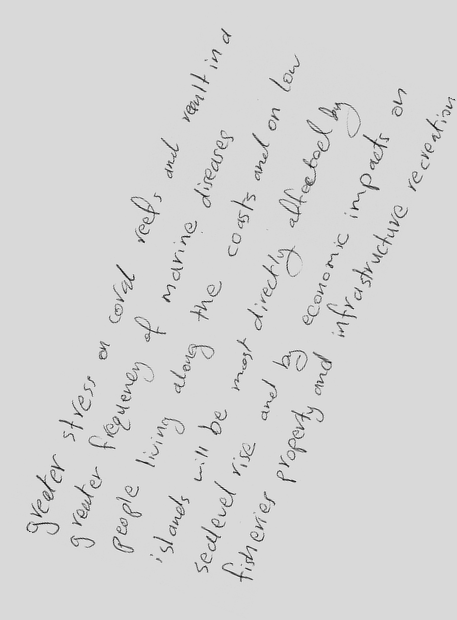 greater stress on coral reefs and result in a
greater frequency of marine diseases
people living along the coasts and on low
islands will be most directly affected by
sealevel rise and by economic impacts on
fisheries property and infrastructure recreation